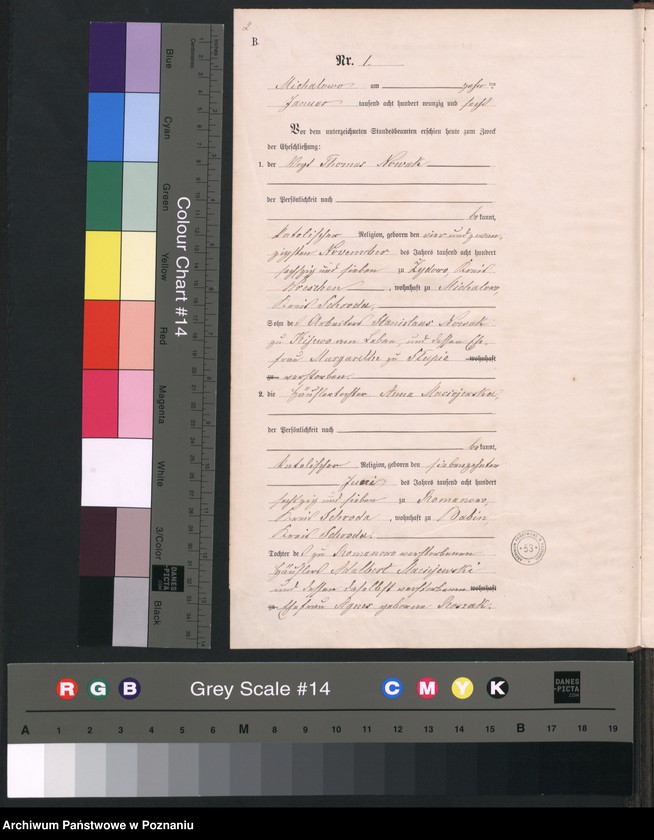 2
B.
Nr. 1.
Michalowo am
Januar tausend acht hundert neunzig und sechs
Vor dem unterzeichneten Standesbeamten erschien heute zum Zweck
der Eheschließung:
1. der Vogt Thomas Nowak
der Persönlichkeit nach
bekannt,
katolischer Religion, geboren den vier und zwan-
zigsten November des Jahres tausend acht hundert
sechzig und sieben zu Zydowo, Kreis
Wreschen, wohnhaft zu Michalowo,
Kreis Schroda,
Sohn des Arbeiters Stanislaus Nowak
zu Kijewo am Leben, und dessen Ehe-
frau Margarethe zu Slupia wohnhaft
verstorben.
2. die Häuslertochter Anna Maciejewska,
der Persönlichkeit nach
bekannt,
katolischer Religion, geboren den siebenzehnten
Juni des Jahres tausend acht hundert
sechzig und sieben zu Romanowo,
Kreis Schroda, wohnhaft zu Babin
Kreis Schroda.
Tochter des zu Romanowo verstorbenen
Häuslers Adalbert Maciejewski
und dessen daselbst verstorbenen wohnhaft
Ehefrau Agnes geborene Roszak.
Colour Chart #14
Blue
Cyan
Green
Yellow
Red
Magenta
White
3/Color
Black
Centimetres
Inches
DANES
-PICTA
.COM
53
R G B Grey Scale #14 C M Y K
DANES
-PICTA
.COM
A 1 2 3 4 5 6 M 8 9 10 11 12 13 14 15 B 17 18 19
Archiwum Państwowe w Poznaniu